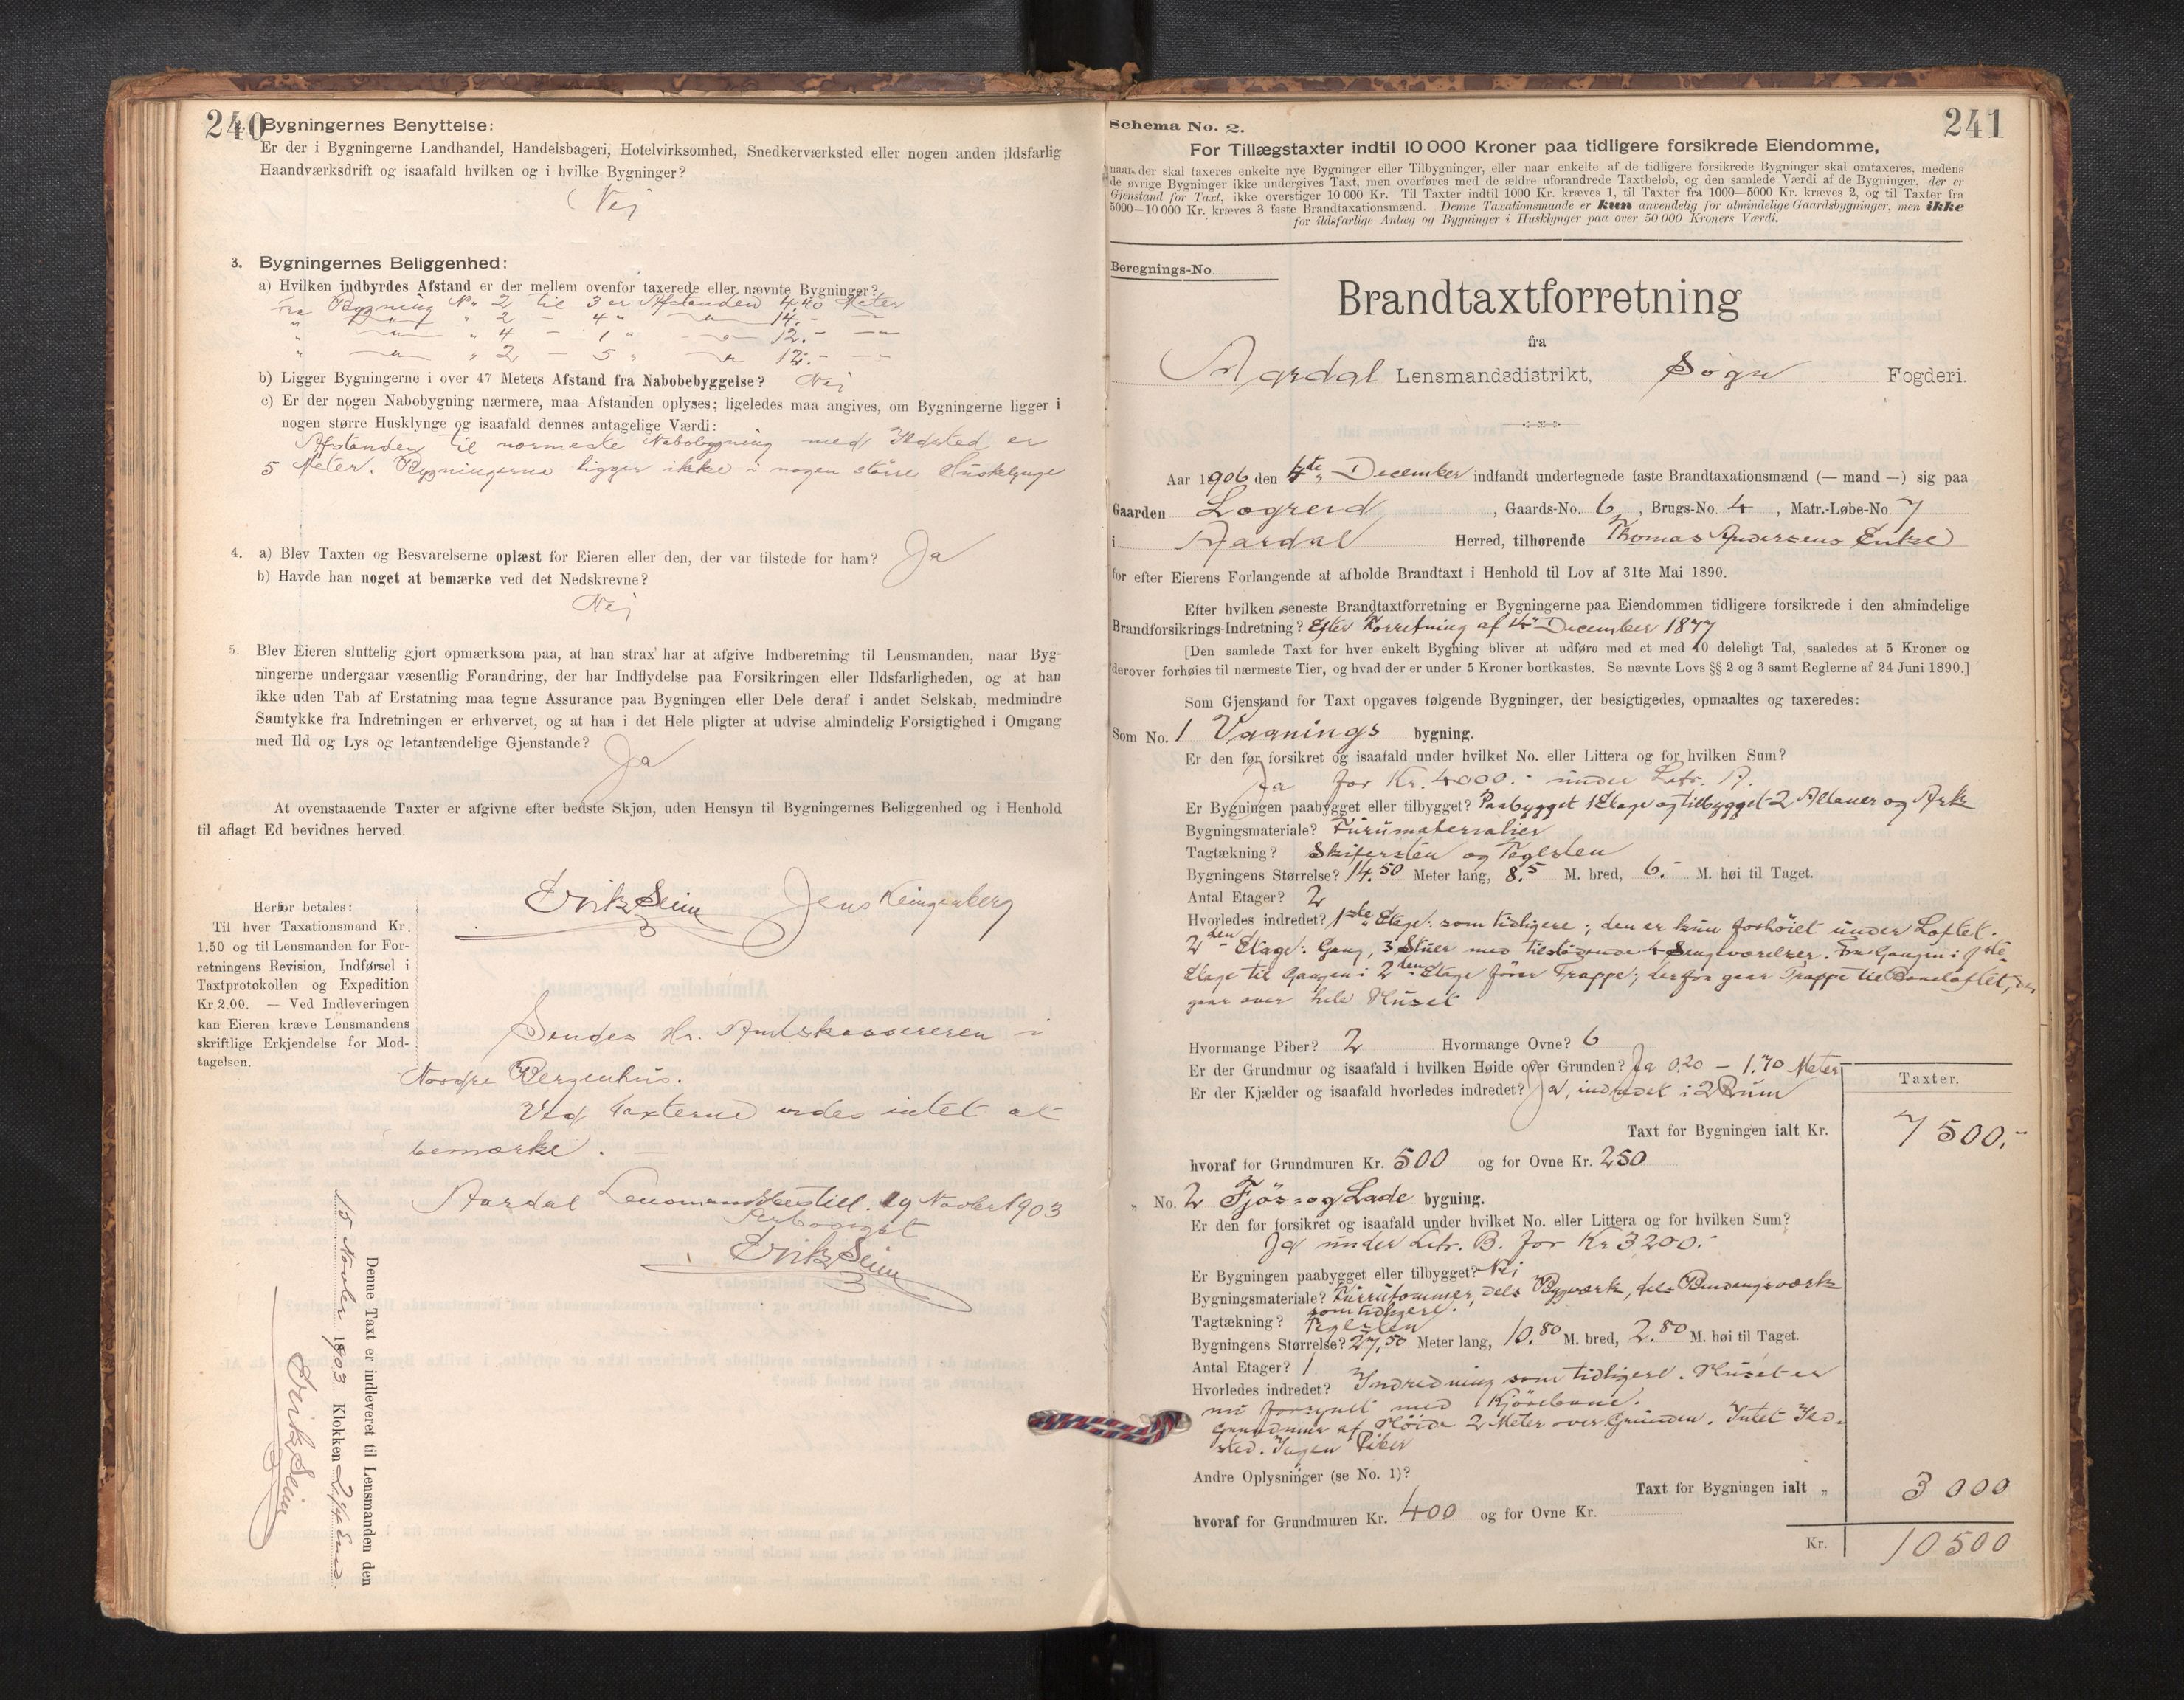 240
Bygningernes Benyttelse:
Er der i Bygningerne Landhandel, Handelsbageri, Hotelvirksomhed, Snedkerværksted eller nogen anden ildsfarlig
Haandværksdrift og isaafald hvilken og i hvilke Bygninger?
Nej
3. Bygningernes Beliggenhed:
a) Hvilken indbyrdes Afstand er der mellem ovenfor taxerede eller nævnte Bygninger?
Fra Bygning No 2 til 3 er Afstanden 4,40 Meter
" " 2 - 4 " 14.-
" " 4 - 1 " 12.-
" " 2 - 5 " 12.-
b) Ligger Bygningerne i over 47 Meters Afstand fra Nabobebyggelse? Nej
c) Er der nogen Nabobygning nærmere, maa Afstanden oplyses; ligeledes maa angives, om Bygningerne ligger i
nogen større Husklynge og isaafald dennes antagelige Værdi:
Afstanden til nærmeste Nabobygning med Ildsted er
5 Meter. Bygningerne ligger ikke i nogen større Husklynge
4. a) Blev Taxten og Besvarelserne oplæst for Eieren eller den, der var tilstede for ham? Ja
b) Havde han noget at bemærke ved det Nedskrevne?
Nej
5. Blev Eieren sluttelig gjort opmærksom paa, at han strax har at afgive Indberetning til Lensmanden, naar Byg-
ningerne undergaar væsentlig Forandring, der har Indflydelse paa Forsikringen eller Ildsfarligheden, og at han
ikke uden Tab af Erstatning maa tegne Assurance paa Bygningen eller Dele deraf i andet Selskab, medmindre
Samtykke fra Indretningen er erhvervet, og at han i det Hele pligter at udvise almindelig Forsigtighed i Omgang
med Ild og Lys og letantændelige Gjenstande? Ja
At ovenstaaende Taxter er afgivne efter bedste Skjøn, uden Hensyn til Bygningernes Beliggenhed og i Henhold
til aflagt Ed bevidnes herved.
Erik Seim Jens Klingenberg
Herfor betales:
Til hver Taxationsmand Kr.
1.50 og til Lensmanden for For-
retningens Revision, Indførsel i
Taxtprotokollen og Expedition
Kr. 2.00. — Ved Indleveringen
kan Eieren kræve Lensmandens
skriftlige Erkjendelse for Mod-
tagelsen.
Sendes Hr. Amtskassereren i
Nordre Bergenhus.
Ved Taxterne vides intet at
bemærke. —
Aardal Lensmandsbestill. 19 Novbr 1903
Ærbødigst
Erik Seim
Denne Taxt er indleveret til Lensmanden den
Novbr 1903 Klokken 2
Erik Seim
241
Schema No. 2.
For Tillægstaxter indtil 10 000 Kroner paa tidligere forsikrede Eiendomme,
naar der skal taxeres enkelte nye Bygninger eller Tilbygninger, eller naar enkelte af de tidligere forsikrede Bygninger skal omtaxeres, medens
de øvrige Bygninger ikke undergives Taxt, men overføres med de ældre uforandrede Taxtbeløb, og den samlede Værdi af de Bygninger, der er
Gjenstand for Taxt, ikke overstiger 10 000 Kr. Til Taxter indtil 1000 Kr. kræves 1, til Taxter fra 1000—5000 Kr. kræves 2, og til Taxter fra
5000—10 000 Kr. kræves 3 faste Brandtaxationsmænd. Denne Taxationsmaade er kun anvendelig for almindelige Gaardsbygninger, men ikke
for ildsfarlige Anlæg og Bygninger i Husklynger paa over 50 000 Kroners Værdi.
Beregnings-No.
Brandtaxtforretning
fra
Aardal Lensmandsdistrikt, Sogn Fogderi.
Aar 1906 den 4de December indfandt undertegnede faste Brandtaxationsmænd (— mand —) sig paa
Gaarden Lægreid, Gaards-No. 6, Brugs-No 4, Matr.-Løbe-No. 7
i Aardal Herred, tilhørende Thomas Andersens Enke
for efter Eierens Forlangende at afholde Brandtaxt i Henhold til Lov af 31te Mai 1890.
Efter hvilken seneste Brandtaxtforretning er Bygningerne paa Eiendommen tidligere forsikrede i den almindelige
Brandforsikrings-Indretning? Efter Forretning af 14 December 1877
[Den samlede Taxt for hver enkelt Bygning bliver at udføre med et med 10 deleligt Tal, saaledes at 5 Kroner og
derover forhøies til nærmeste Tier, og hvad der er under 5 Kroner bortkastes. Se nævnte Lovs §§ 2 og 3 samt Reglerne af 24 Juni 1890.]
Som Gjenstand for Taxt opgaves følgende Bygninger, der besigtigedes, opmaaltes og taxeredes:
Som No. 1 Vaanings bygning.
Er den før forsikret og isaafald under hvilket No. eller Littera og for hvilken Sum?
Ja for Kr. 4000.- under Litr. A.
Er Bygningen paabygget eller tilbygget? Paabygget 1 Etage og tilbygget 2 Altaner og Ark
Bygningsmateriale? Furumaterialier
Tagtækning? Skifersten og Teglsten
Bygningens Størrelse? 14.50 Meter lang, 8.5 M. bred, 6.- M. høi til Taget.
Antal Etager? 2
Hvorledes indredet? 1ste Etage: som tidligere; den er kun forhøiet under Loftet.
2den Etage: Gang, 3 Stuer med tilstødende 4 Sengeværelser. Fra Gangen i 1ste
Etage til Gangen i 2den Etage fører Trappe; derfra gaar Trappe til Taneloftet, der
gaar over hele Huset
Hvormange Piber? 2 Hvormange Ovne? 6
Er der Grundmur og isaafald i hvilken Høide over Grunden? Ja 0,20 — 1,70 Meter
Er der Kjælder og isaafald hvorledes indredet? Ja, indredet i 2 Rum
Taxter.
Taxt for Bygningen ialt Kr. 7 500.-
hvoraf for Grundmuren Kr. 500 og for Ovne Kr. 250
" No. 2 Fjøs- og Lade bygning.
Er den før forsikret og isaafald under hvilket No. eller Littera og for hvilken Sum?
Ja under Litr. B. for Kr 3200.-
Er Bygningen paabygget eller tilbygget? Nei
Bygningsmateriale? Furutømmer, dels Bygværk, dels Bindingsværk
som tidligere.
Tagtækning? Teglsten
Bygningens Størrelse? 27,50 Meter lang, 10.80 M. bred, 2.80 M. høi til Taget.
Antal Etager? 1
Hvorledes indredet? Indredning som tidligere. Huset er
nu forsynet med Kjørebane.
Grundmur af Høide 2 Meter over Grunden. Intet Ild-
sted. Ingen Piber
Andre Oplysninger (se No. 1)?
Taxt for Bygningen ialt " 3 000
hvoraf for Grundmuren Kr. 400 og for Ovne Kr.
Kr. 10 500